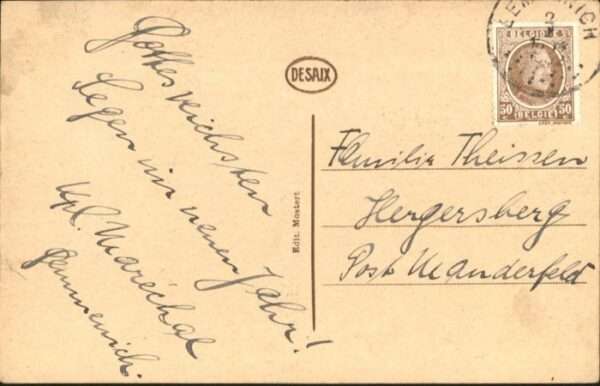 Gottes reichsten
Segen im neuen Jahr!
Kpl. Maréchal
Gemmenich.
DESAIX
Edit. Mostert
GEMMENICH
2
BELGIQUE
50 BELGIË 50
Familie Theissen
Hergersberg
Post Manderfeld